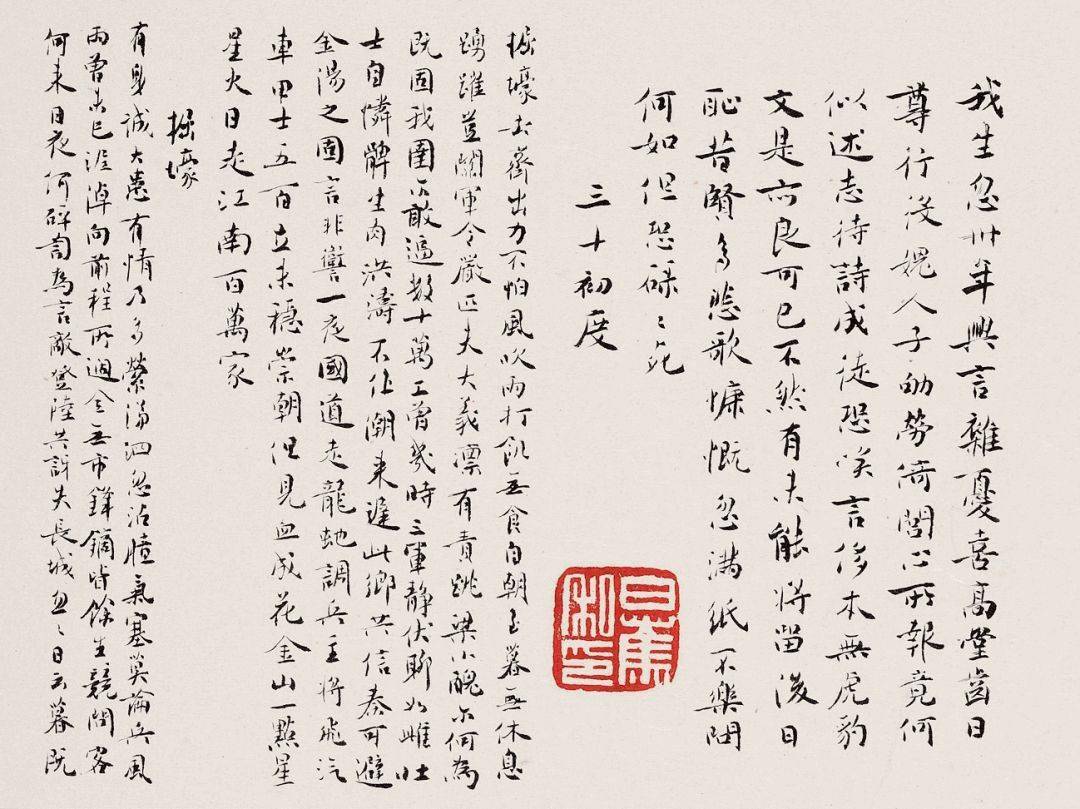 我生忽卅年興言雜憂喜高堂齒日
尊行役媿人子劬勞倚閭心所報竟何
似述志待詩成徒恐嘆言侈本無虎豹
文是亦良可已不然有未能將留後日
恥昔賢多悲歌慷慨忽滿紙不樂
何如但恐碌〻死
三十初度
白蕉私印
掘壕士齊出力不怕風吹雨打飢無食自朝至暮無休息
踴躍並關軍令嚴匹夫大義凛有責跳梁小醜尔何為
既固我圉不敢逼數十萬工曾幾時三軍静伏聊如雌壯
士自憐髀生肉洪濤不作潮来遲此鄉共信秦可避
金湯之固言非讆一夜國道走龍虵調兵主將飛汽
車甲士五百立未穩崇朝但見血成花金山一點星
星火日走江南百萬家
掘壕
有身誠大患有情乃多縈涕泗忽沾臆氣塞莫論兵風
雨曾未已淖向前程所過全無市鋒鏑時餘生競問客
何来日夜何砰訇為言敵登陸共訝失長城匆〻日云暮既